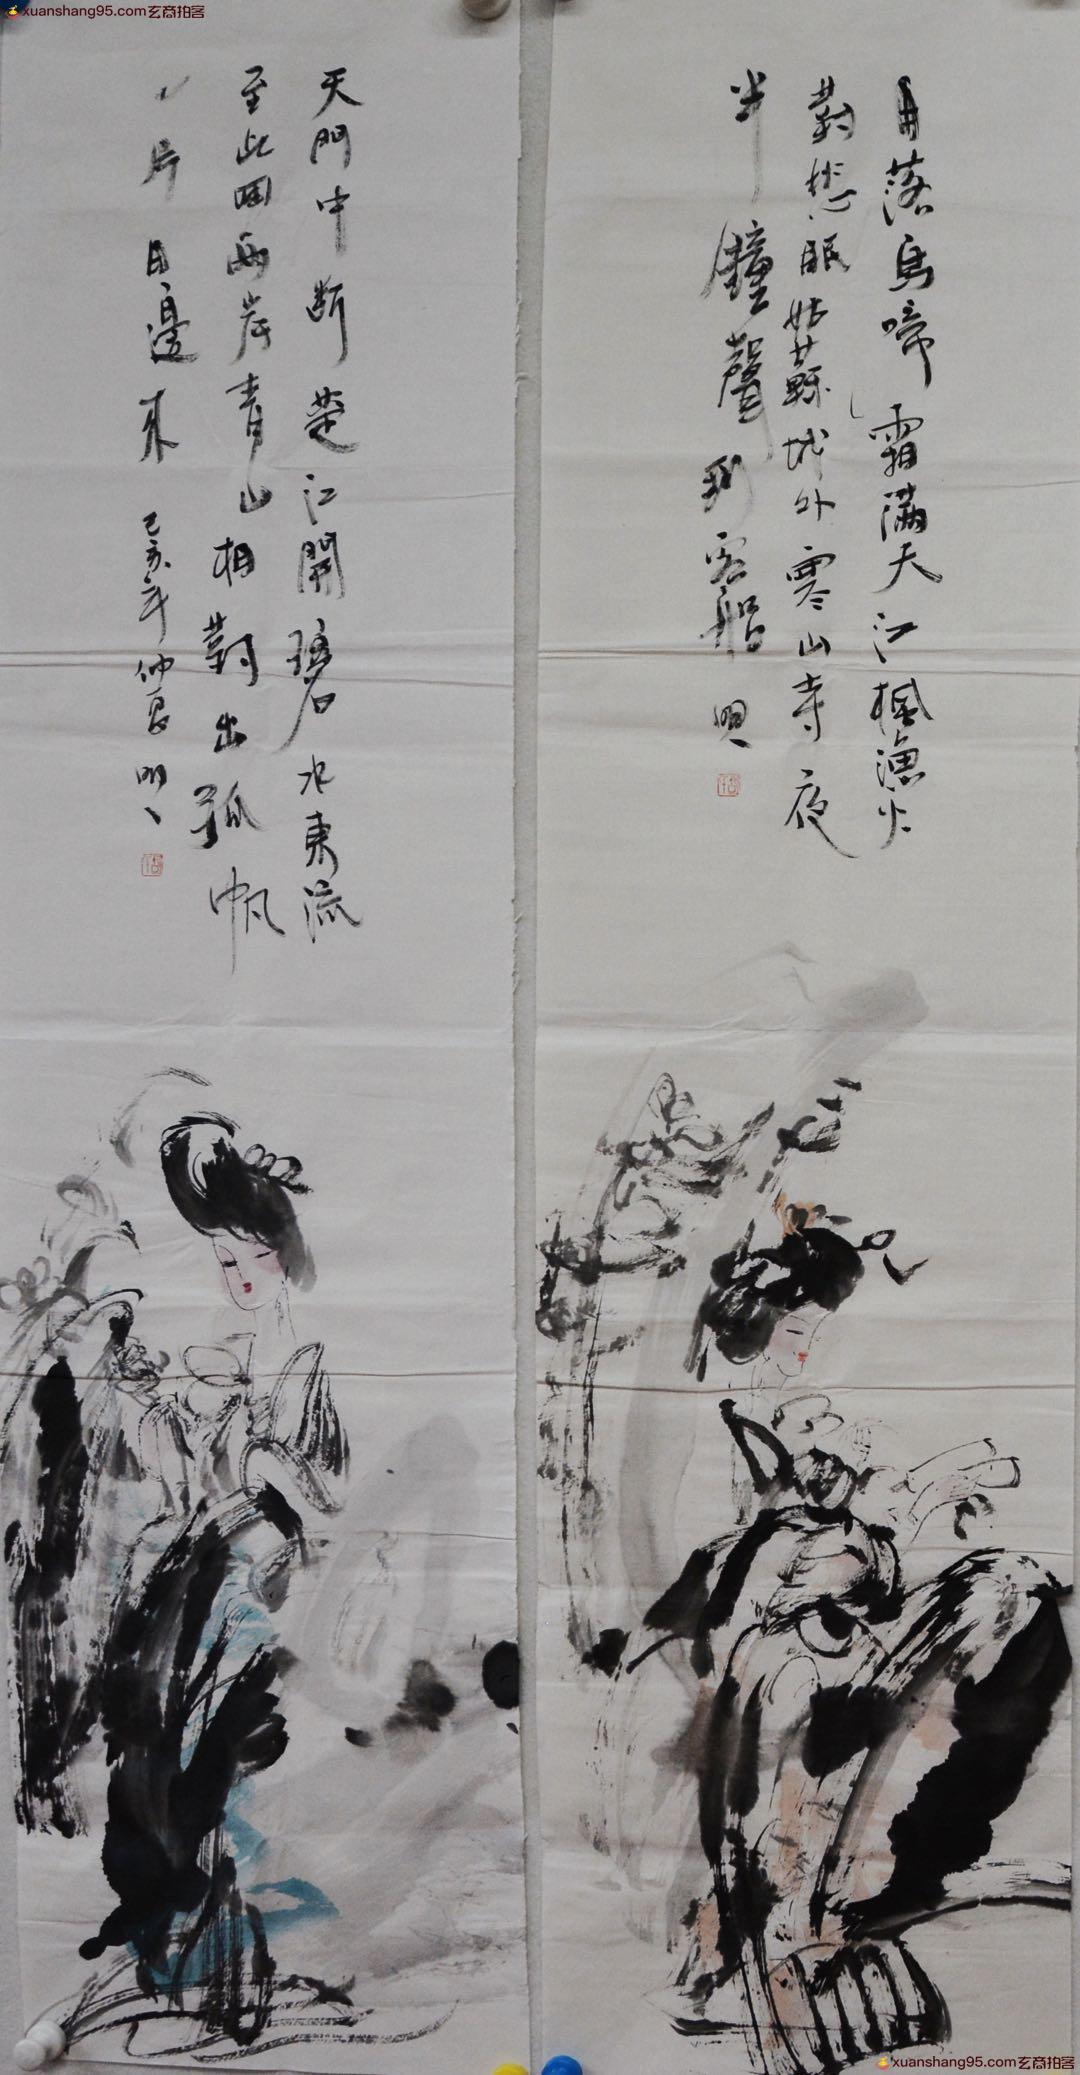 xuanshang95.com玄商拍客
月落烏啼霜滿天江楓漁火
對愁眠姑蘇城外寒山寺夜
半鐘聲到客船 明
天門中斷楚江開碧水東流
至此回兩岸青山相對出孤帆
一片日邊來 己亥年仲夏明
xuanshang95.com玄商拍客